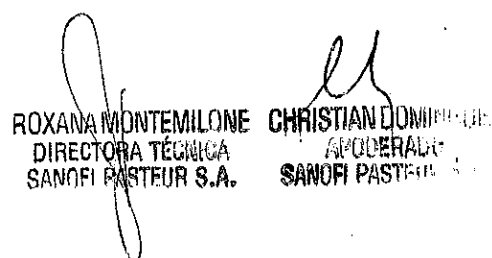 ROXANA MONTEMILONE
DIRECTORA TÉCNICA
SANOFI PASTEUR S.A.
CHRISTIAN
APODERADO
SANOFI